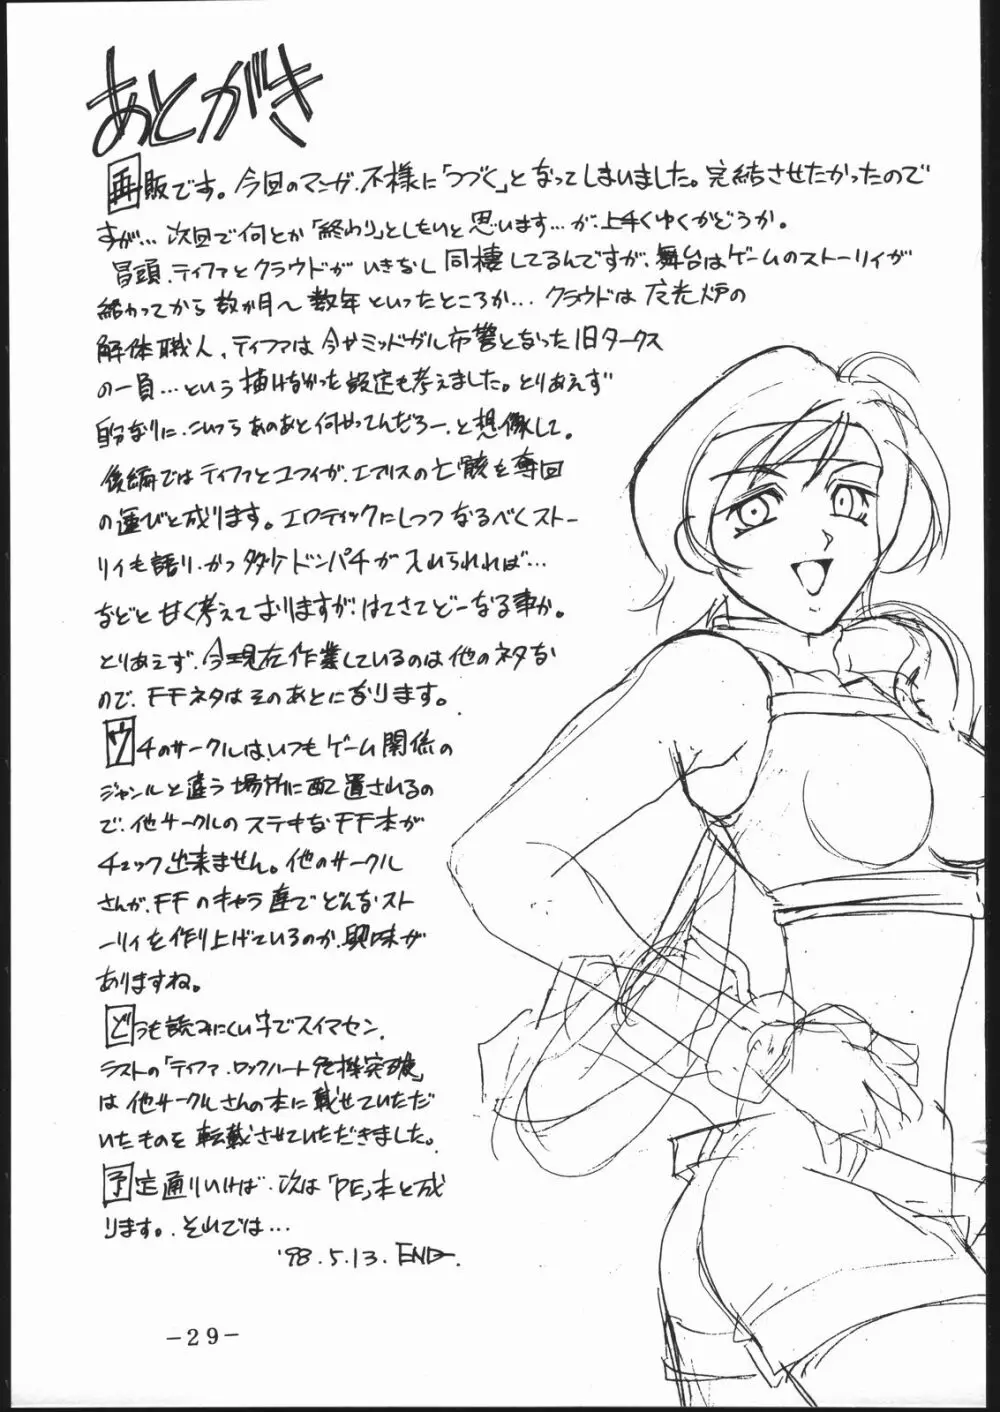 あとがき
再販です。今回のマンガ、不様に「つづく」となってしまいました。完結させたかったので
すが…次回で何とか「終わり」としたいと思います…が、上手くゆくかどうか。
冒頭、ティファとクラウドがいきなし同棲してるんですが、舞台はゲームのストーリィが
終わってから数か月〜数年といったところか…クラウドは魔晄炉の
解体職人、ティファは今やミッドガル市警となった旧タークス
の一員…という描けなかった設定も考えました。とりあえず
自分なりに、こいつらあのあと何やってんだろー、と想像して。
後編ではティファとユフィが、エアリスの亡骸を奪回
の運びと成ります。エロティックにしつつなるべくストー
リィも語り、かつダダッダドンパチが入れられれば…
などと甘く考えておりますが、はてさてどーなる事か。
とりあえず、今現在作業しているのは他のネタな
ので、FFネタはそのあとになります。
ウチのサークルは、いつもゲーム関係の
ジャンルと違う場所に配置されるの
で、他サークルのステキなFF本が
チェック出来ません。他のサークル
さんが、FFのキャラ達でどんなスト
ーリィを作り上げているのか、興味が
ありますね。
どうも読みにくい字でスイマセン。
ラストの「ティファ・ロックハート危機突破」
は他サークルさんの本に載せていただ
いたものを転載させていただきました。
予定通りいけば、次は「PE」本と成
ります。それでは…
'98.5.13. END.
-29-